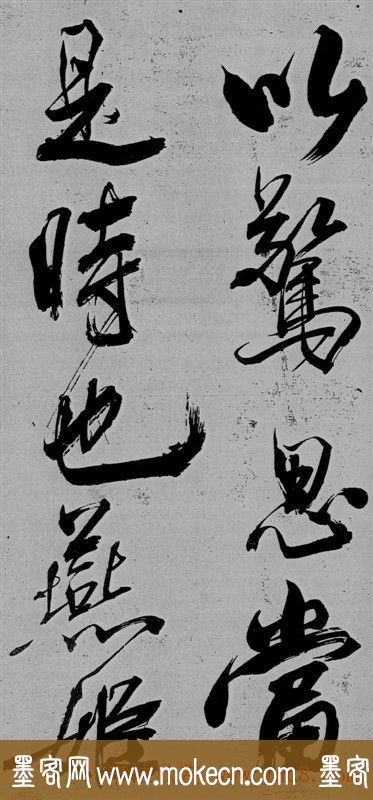 以驚思當
是時也燕姬
墨客网 www.mokecn.com 墨客